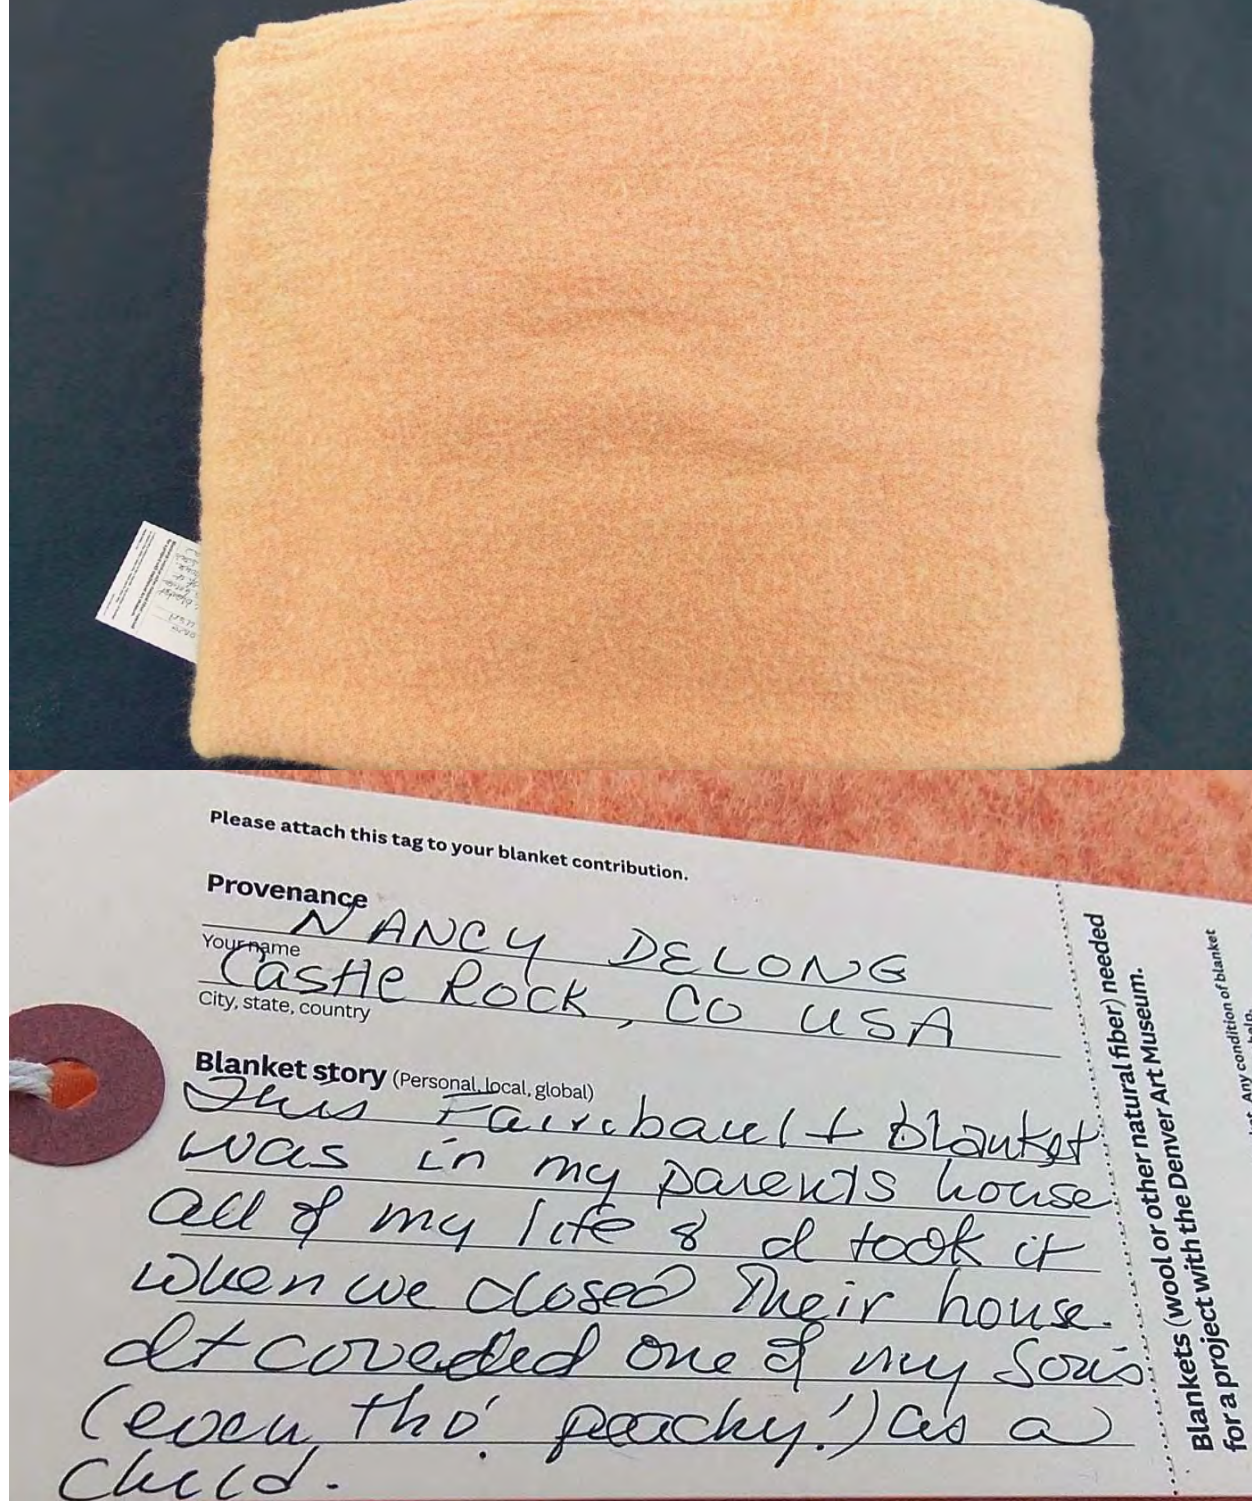 Please attach this tag to your blanket contribution.
Provenance
NANCY DELONG
Your name
Castle Rock, CO USA
City, state, country
Blanket story (Personal, local, global)
This Fairibault blanket
was in my parents house
all of my life & I took it
when we closed their house.
It coveded one of my sons
(even tho' peachy!) as a
child.
Blankets (wool or other natural fiber) needed
for a project with the Denver Art Museum.
Any condition of blanket